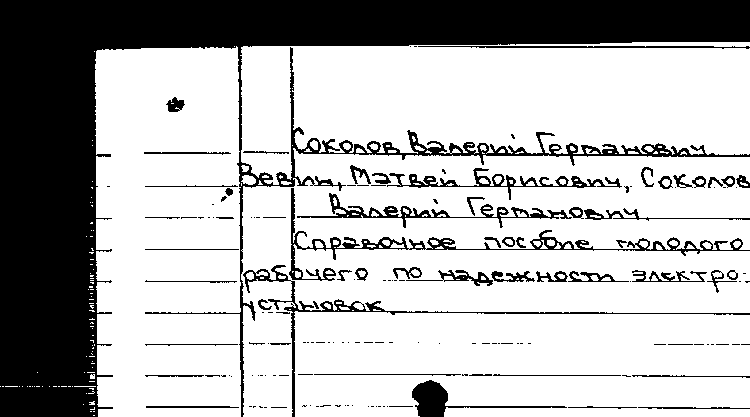 Соколов, Валерий Германович.
Зевин, Матвей Борисович, Соколов
Валерий Германович.
Справочное пособие молодого
рабочего по надежности электро-
установок.